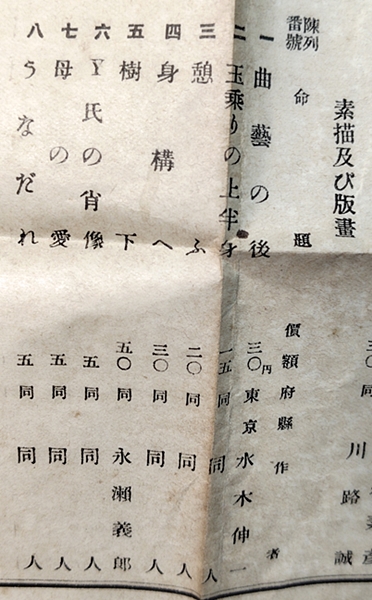 三〇同 川路 誠
素描及び版畫
陳列番號 命題 價額 府縣 作者
一 曲藝の後 三〇円 東京 水木伸一
二 玉乘りの上半身 一五 同 同人
三 憩ふ 二〇 同 同人
四 身構へ 三〇 同 同人
五 樹下 五〇 同 永瀬義郎
六 Y氏の肖像 五 同 同人
七 母の愛 五 同 同人
八 うなだれ 五 同 同人